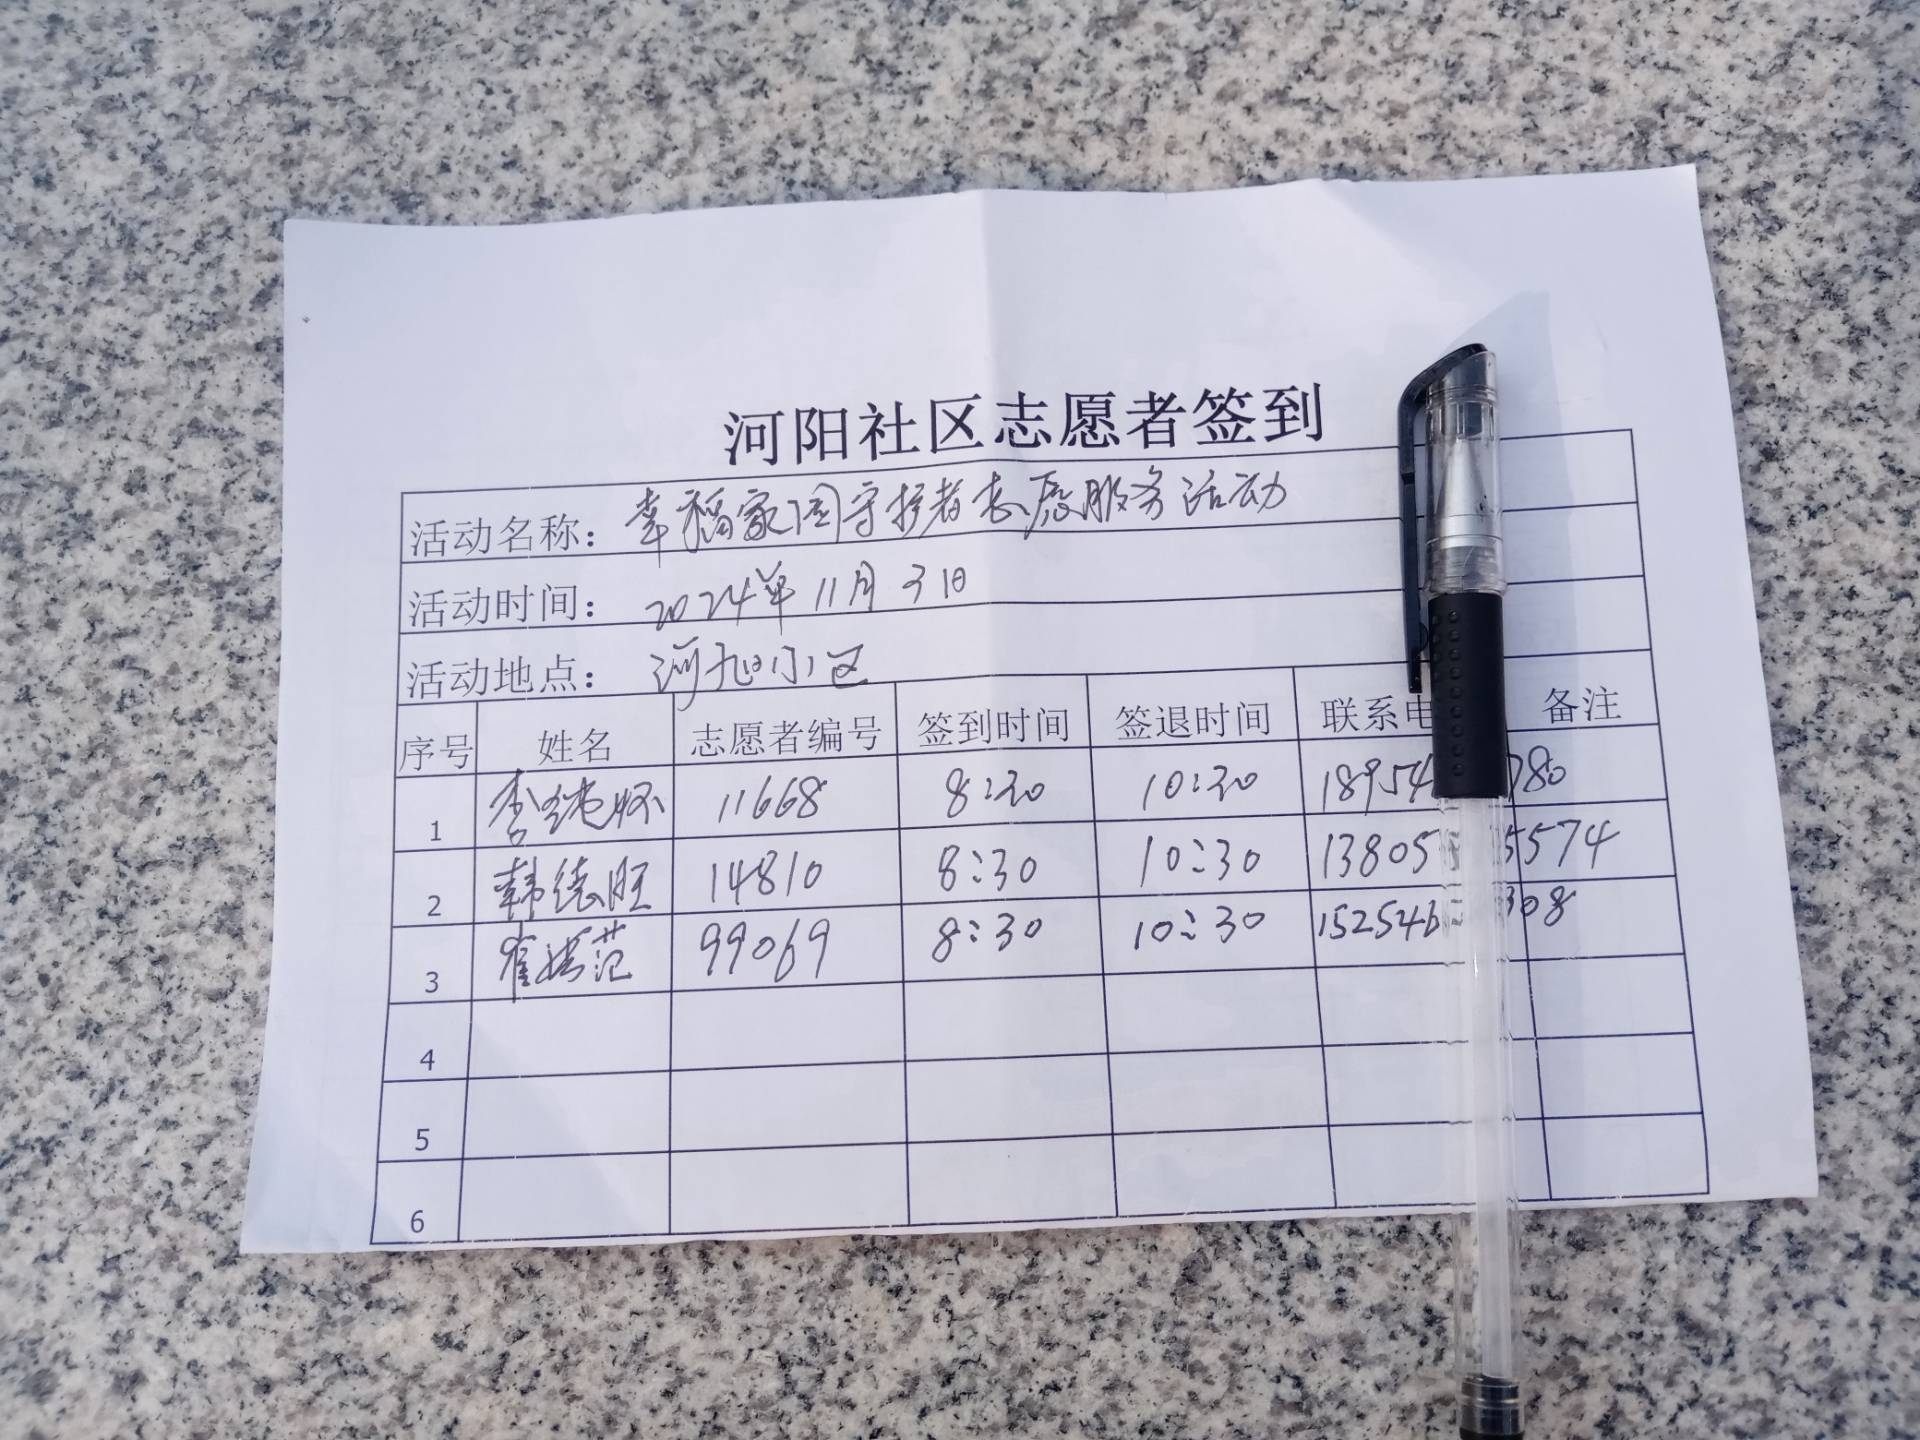 河阳社区志愿者签到
活动名称： 幸福家园守护者志愿服务活动
活动时间： 2024年11月3日
活动地点： 河旭小区
序号 姓名 志愿者编号 签到时间 签退时间 联系电 备注
1 李纯怀 11668 8:30 10:30 18954 780
2 韩德旺 14810 8:30 10:30 13805 5574
3 崔 范 99069 8:30 10:30 152546 308
4
5
6